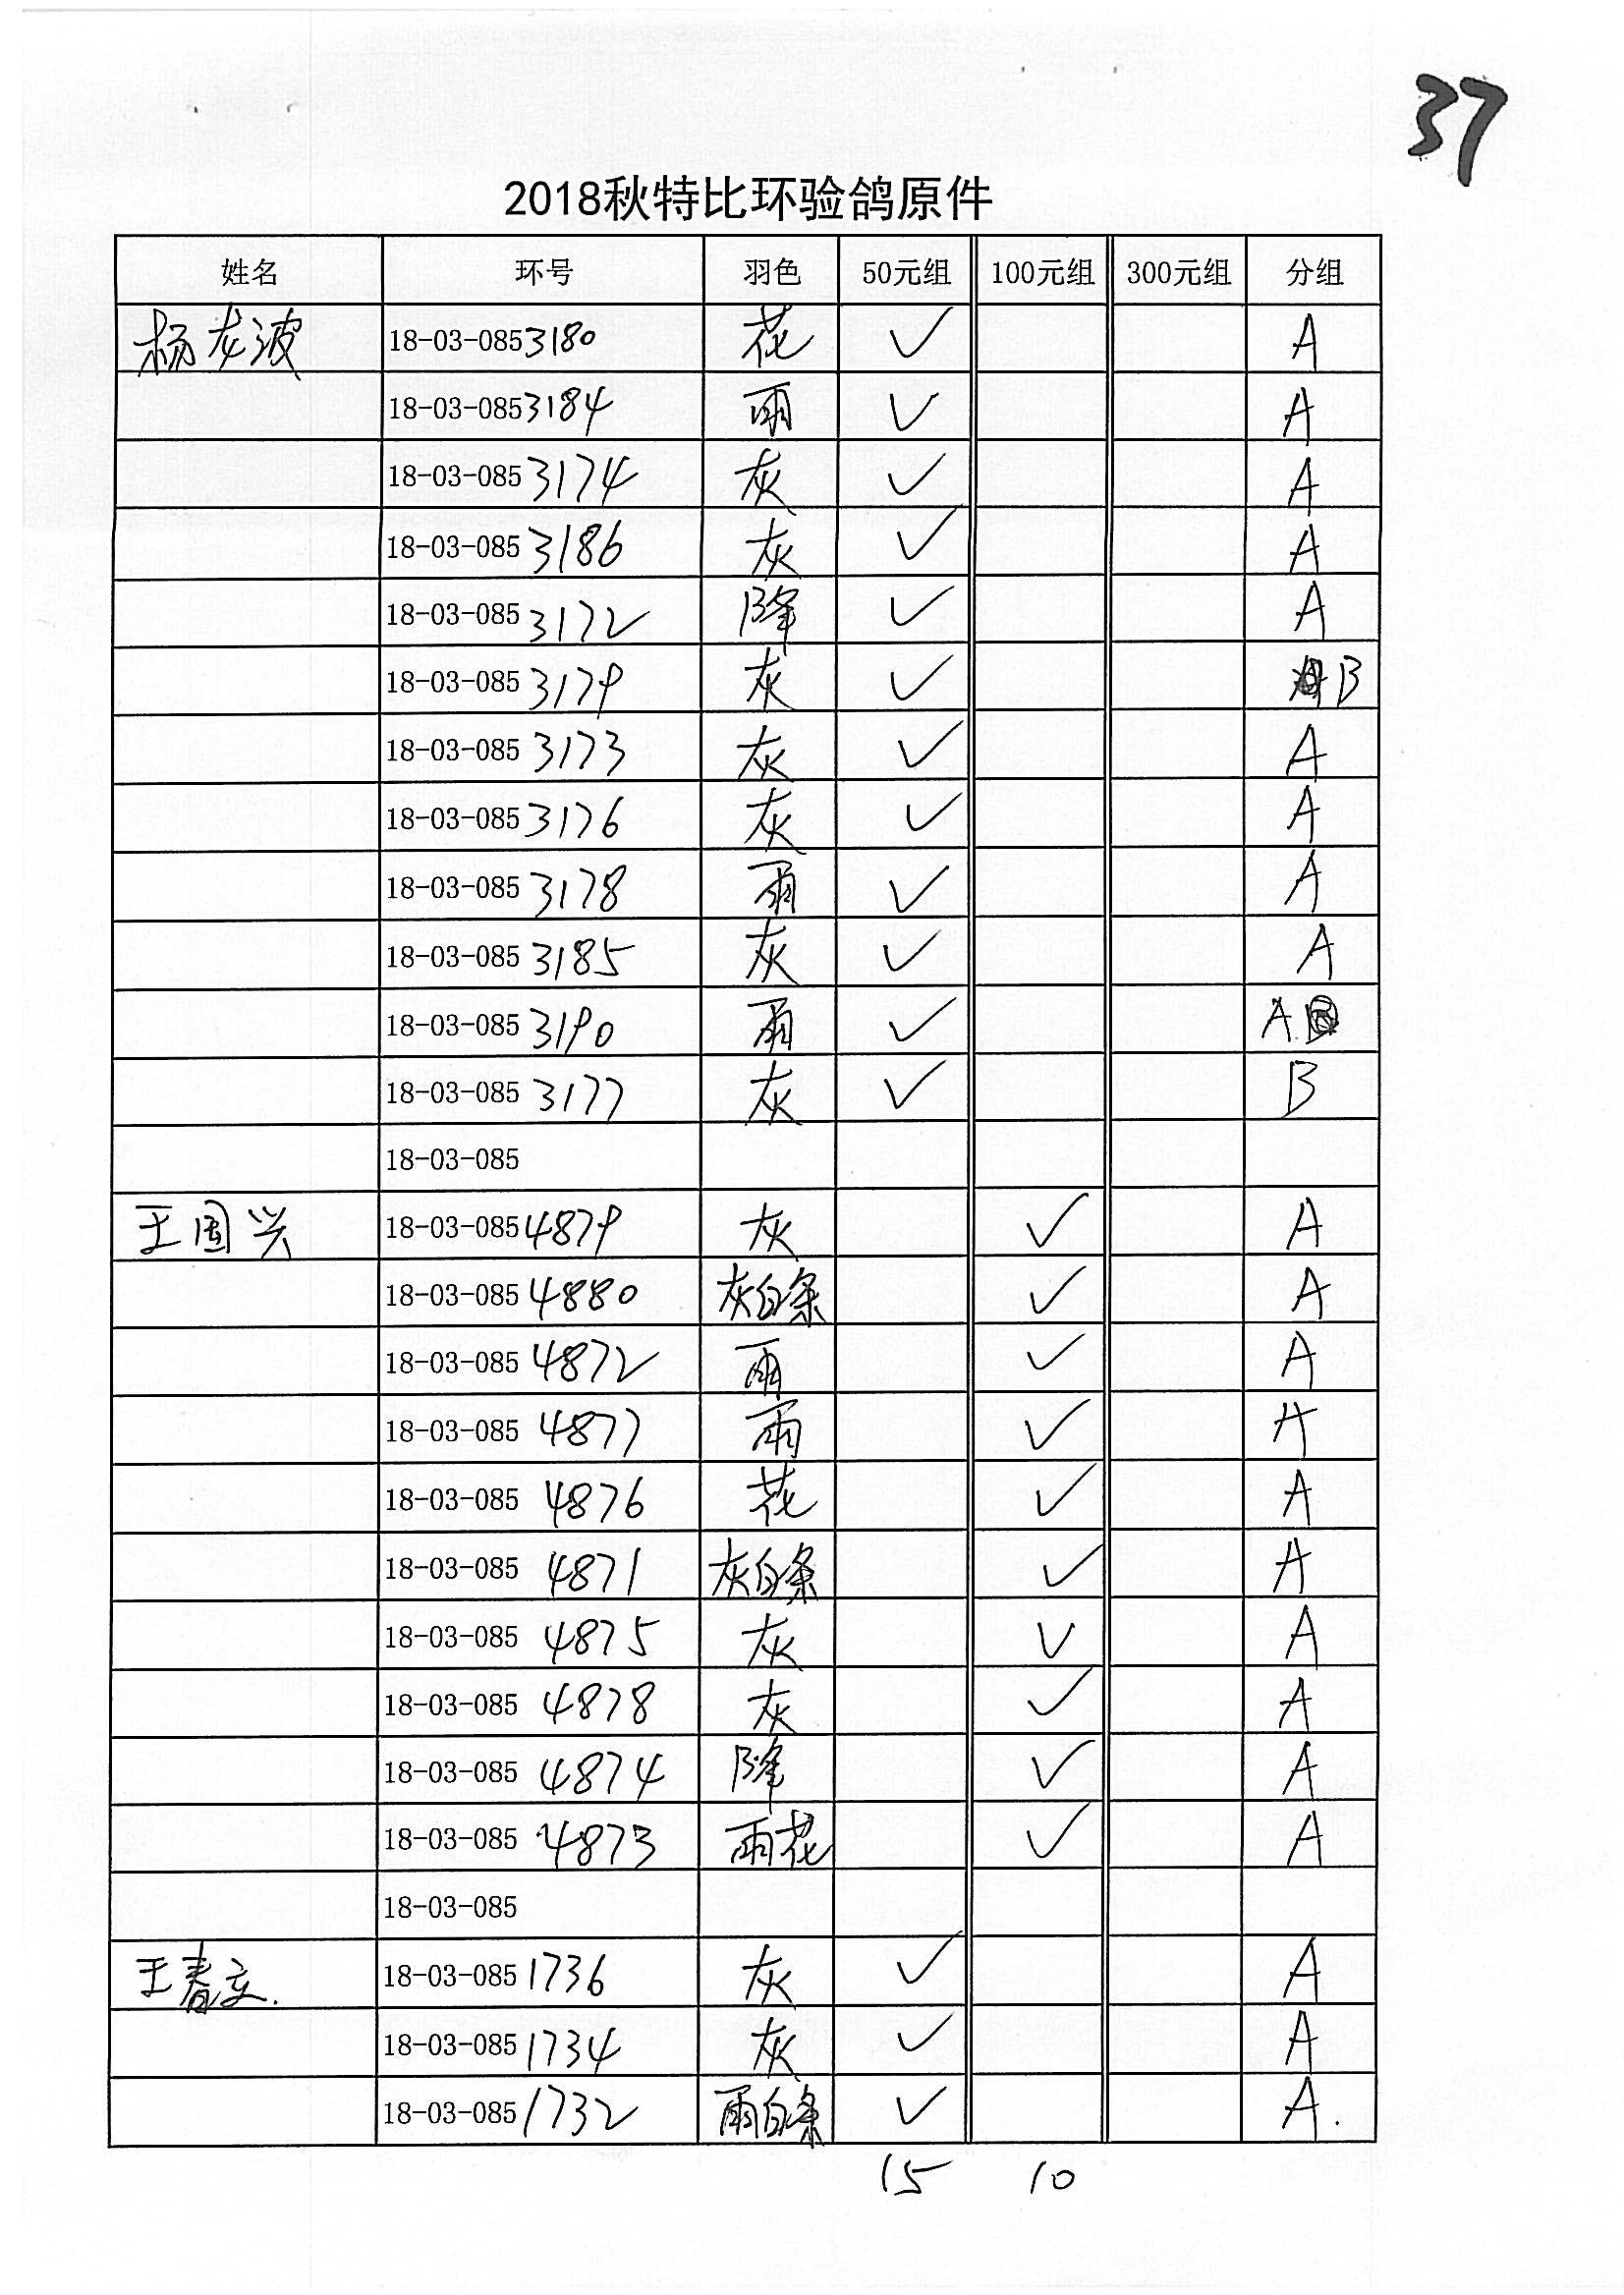 37
2018秋特比环验鸽原件
姓名 环号 羽色 50元组 100元组 300元组 分组
杨龙波 18-03-0853180 花 ✓ A
18-03-0853184 雨 ✓ A
18-03-0853174 灰 ✓ A
18-03-0853186 灰 ✓ A
18-03-0853172 降 ✓ A
18-03-0853179 灰 ✓ B
18-03-0853173 灰 ✓ A
18-03-0853176 灰 ✓ A
18-03-0853178 雨 ✓ A
18-03-0853185 灰 ✓ A
18-03-0853190 雨 ✓ A
18-03-0853177 灰 ✓ B
18-03-085
王国兴 18-03-0854879 灰 ✓ A
18-03-0854880 灰白条 ✓ A
18-03-0854872 雨 ✓ A
18-03-0854877 雨 ✓ A
18-03-0854876 花 ✓ A
18-03-0854871 灰白条 ✓ A
18-03-0854875 灰 ✓ A
18-03-0854878 灰 ✓ A
18-03-0854874 降 ✓ A
18-03-0854873 雨花 ✓ A
18-03-085
王春立. 18-03-0851736 灰 ✓ A
18-03-0851734 灰 ✓ A
18-03-0851732 雨白条 ✓ A.
15 10